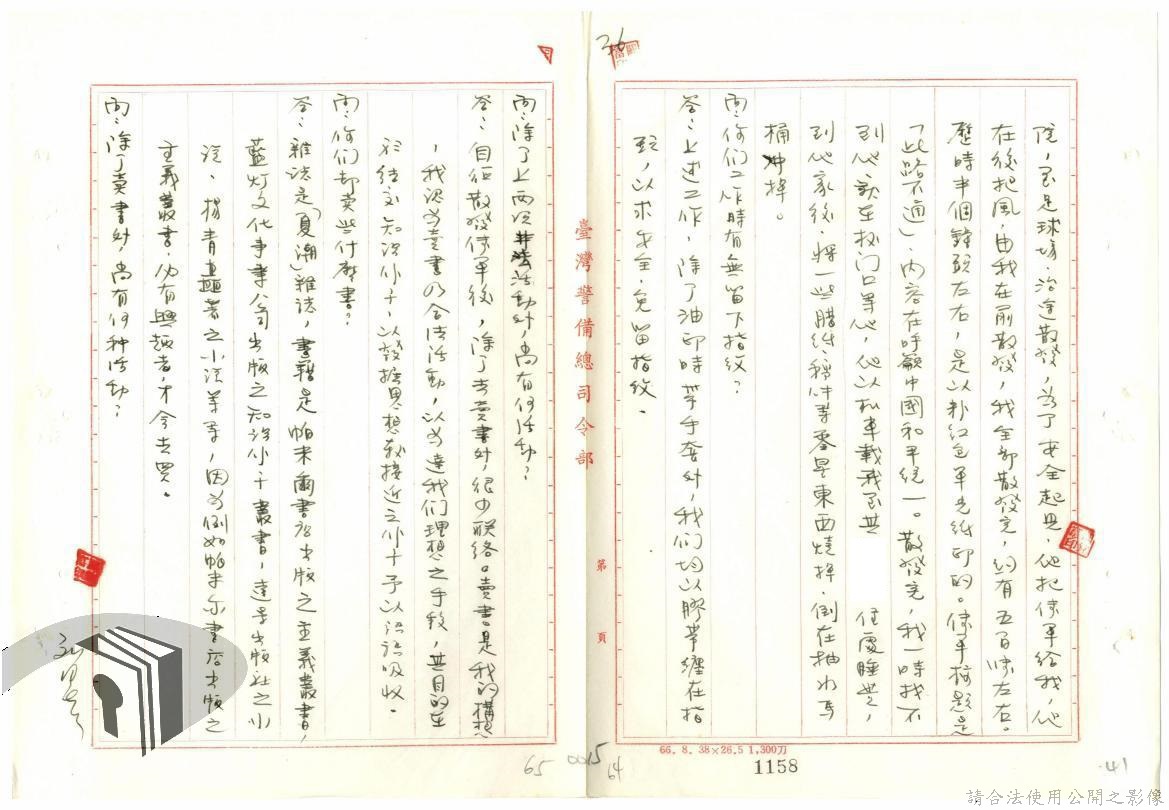 36
院，至足球場，沿途散發，為了安全起見，他把傳單給我，他
在後把風，由我在前散發，我全部散發完，約有五百張左右。
歷時半個鐘頭左右，是以粉紅色單光紙印的。傳單標題是
「此路不通」，內容在呼籲中國和平統一。散發完，我一時找不
到他，就在校門口等他，他以私車載我至其　　住處睡覺，
到他家後，將一些腊紙、稿件等零星東西燒掉，倒在抽水馬
桶沖掉。
問：你們工作時有無留下指紋？
答：上述工作，除了油印時帶手套外，我們均以膠帶纏在指
頭，以求安全，免留指紋。
臺灣警備總司令部
第　頁
問：除了上兩次非法活動外，尚有何活動？
答：自從散發傳單後，除了去賣書外，很少联络。賣書是我的構想
，我認為賣書乃合法活動，以為達我们理想之手段，其目的在
於結交知識份子，以發掘思想較接近之份子予以說語吸收。
問：你们都卖些什麼書？
答：雜誌是「夏潮」雜誌，書籍是帕米爾書店出版之主義叢書，
藍灯文化事業公司出版之知識份子叢書，遠景出版社之小
說、楊青矗著之小說等等，因為例如帕米尔書店出版之
主義叢書，仍有興趣者，才会去買。
問：除了卖書外，尚有何种活動？
66. 8. 38×26.5 1,300刀
1158
65
0015
64
41
請合法使用公開之影像